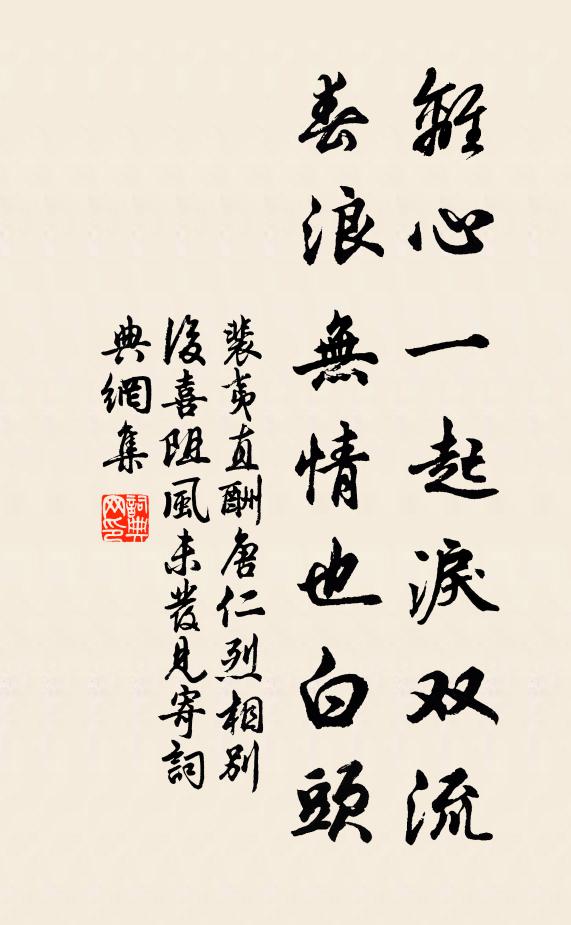 離心一起淚双流
春浪無情也白頭
裴夷直酬唐仁烈相別
後喜阻風未發見寄詞
典網集
詞典网印